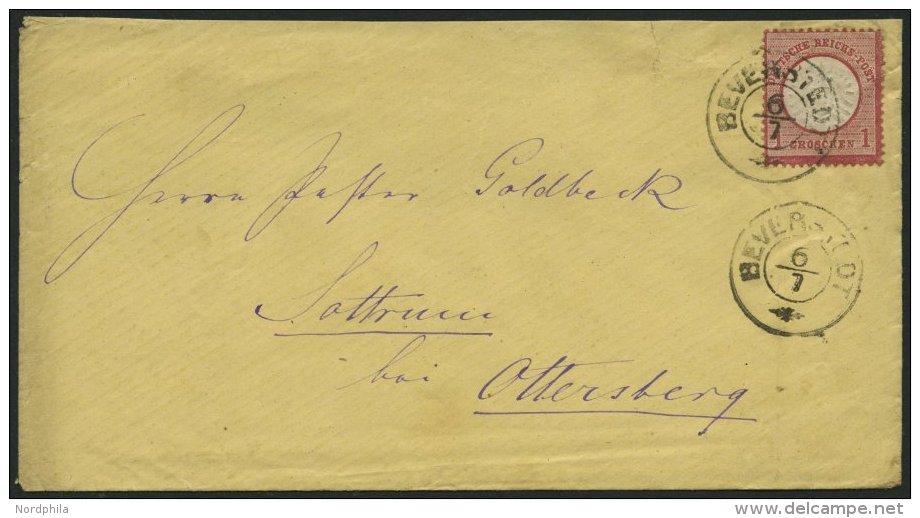 DEUTSCHE REICHS-POST
1 GROSCHEN 1
BEVERSTEDT
6/7
Herrn Pastor Goldbeck
BEVERSTEDT
6/7
Sottrum
bei Ottersberg
Nordphila
delcampe.net